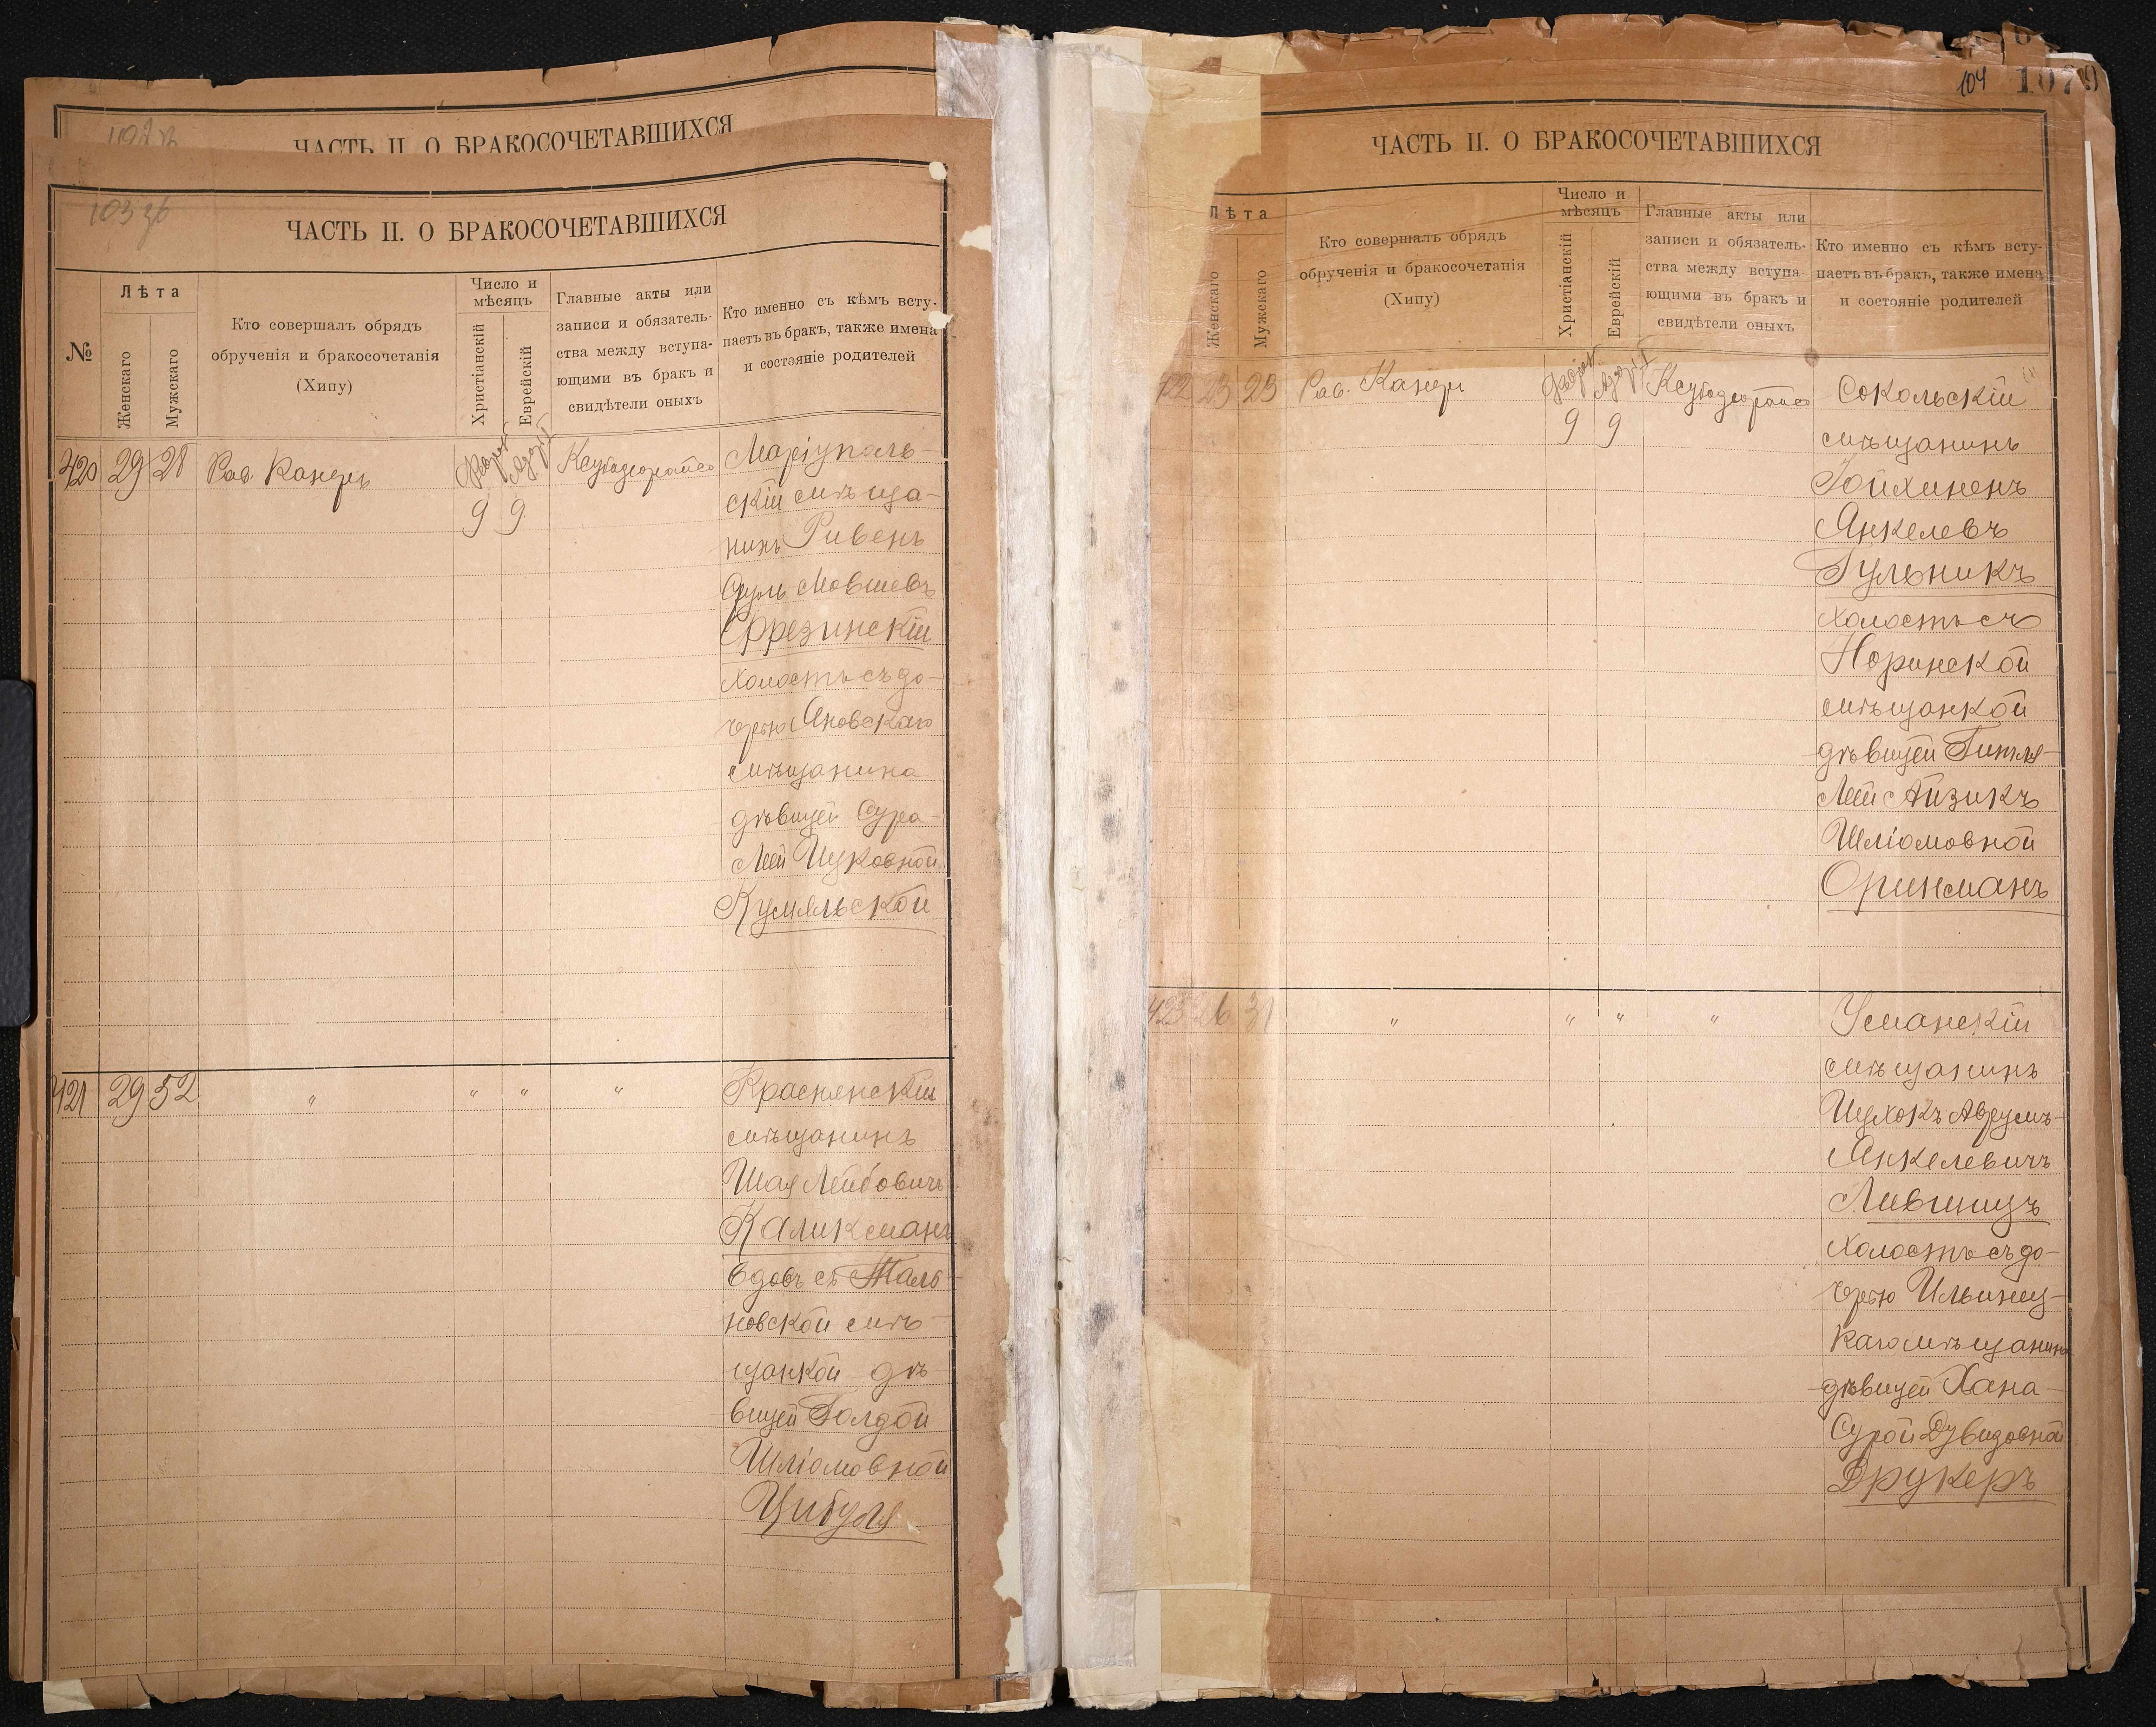 ЧАСТЬ II. О БРАКОСОЧЕТАВШИХСЯ
103 зв
ЧАСТЬ II. О БРАКОСОЧЕТАВШИХСЯ
№
Лѣта
Женскаго
Мужскаго
Кто совершалъ обрядъ
обрученія и бракосочетанія
(Хипу)
Число и
мѣсяцъ
Христіанскій
Еврейскій
Главные акты или
записи и обязатель-
ства между вступа-
ющими въ бракъ и
свидѣтели оныхъ
Кто именно съ кѣмъ всту-
паетъ въ бракъ, также имена
и состояніе родителей
420 29 28 Рав. Канеръ 9 9 Маріуполь-
скій мѣща-
нинъ Рувенъ
Сруль Мовшевъ
Фрезинскій
холостъ съ до-
черью Яновскаго
мѣщанина
дѣвицей Сура-
Леей Ицковной
Кумельской
421 29 52 " " " " Краснянскій
мѣщанинъ
Шая Лейбовичъ
Каликманъ
вдовъ съ Таль-
новской мѣ-
щанкой дѣ-
вицей Голдой
Шліомовной
Цибуля
104 1079
ЧАСТЬ II. О БРАКОСОЧЕТАВШИХСЯ
Лѣта
Женскаго
Мужскаго
Кто совершалъ обрядъ
обрученія и бракосочетанія
(Хипу)
Число и
мѣсяцъ
Христіанскій
Еврейскій
Главные акты или
записи и обязатель-
ства между вступа-
ющими въ бракъ и
свидѣтели оныхъ
Кто именно съ кѣмъ всту-
паетъ въ бракъ, также имена
и состояніе родителей
422 23 23 Рав. Канеръ 9 9 Сокольскій
мѣщанинъ
Янкелевъ
Гульникъ
холостъ съ
Норинской
мѣщанкой
дѣвицей Гитля-
Леей Айзикъ
Шліомовной
423 26 31 " " " " Уманскій
мѣщанинъ
Ицхокъ Аврумъ-
Янкелевичъ
Лившицъ
холостъ съ до-
черью Ильинец-
каго мѣщанина
дѣвицей Хана-
Сурой Дувидовной
Друкеръ